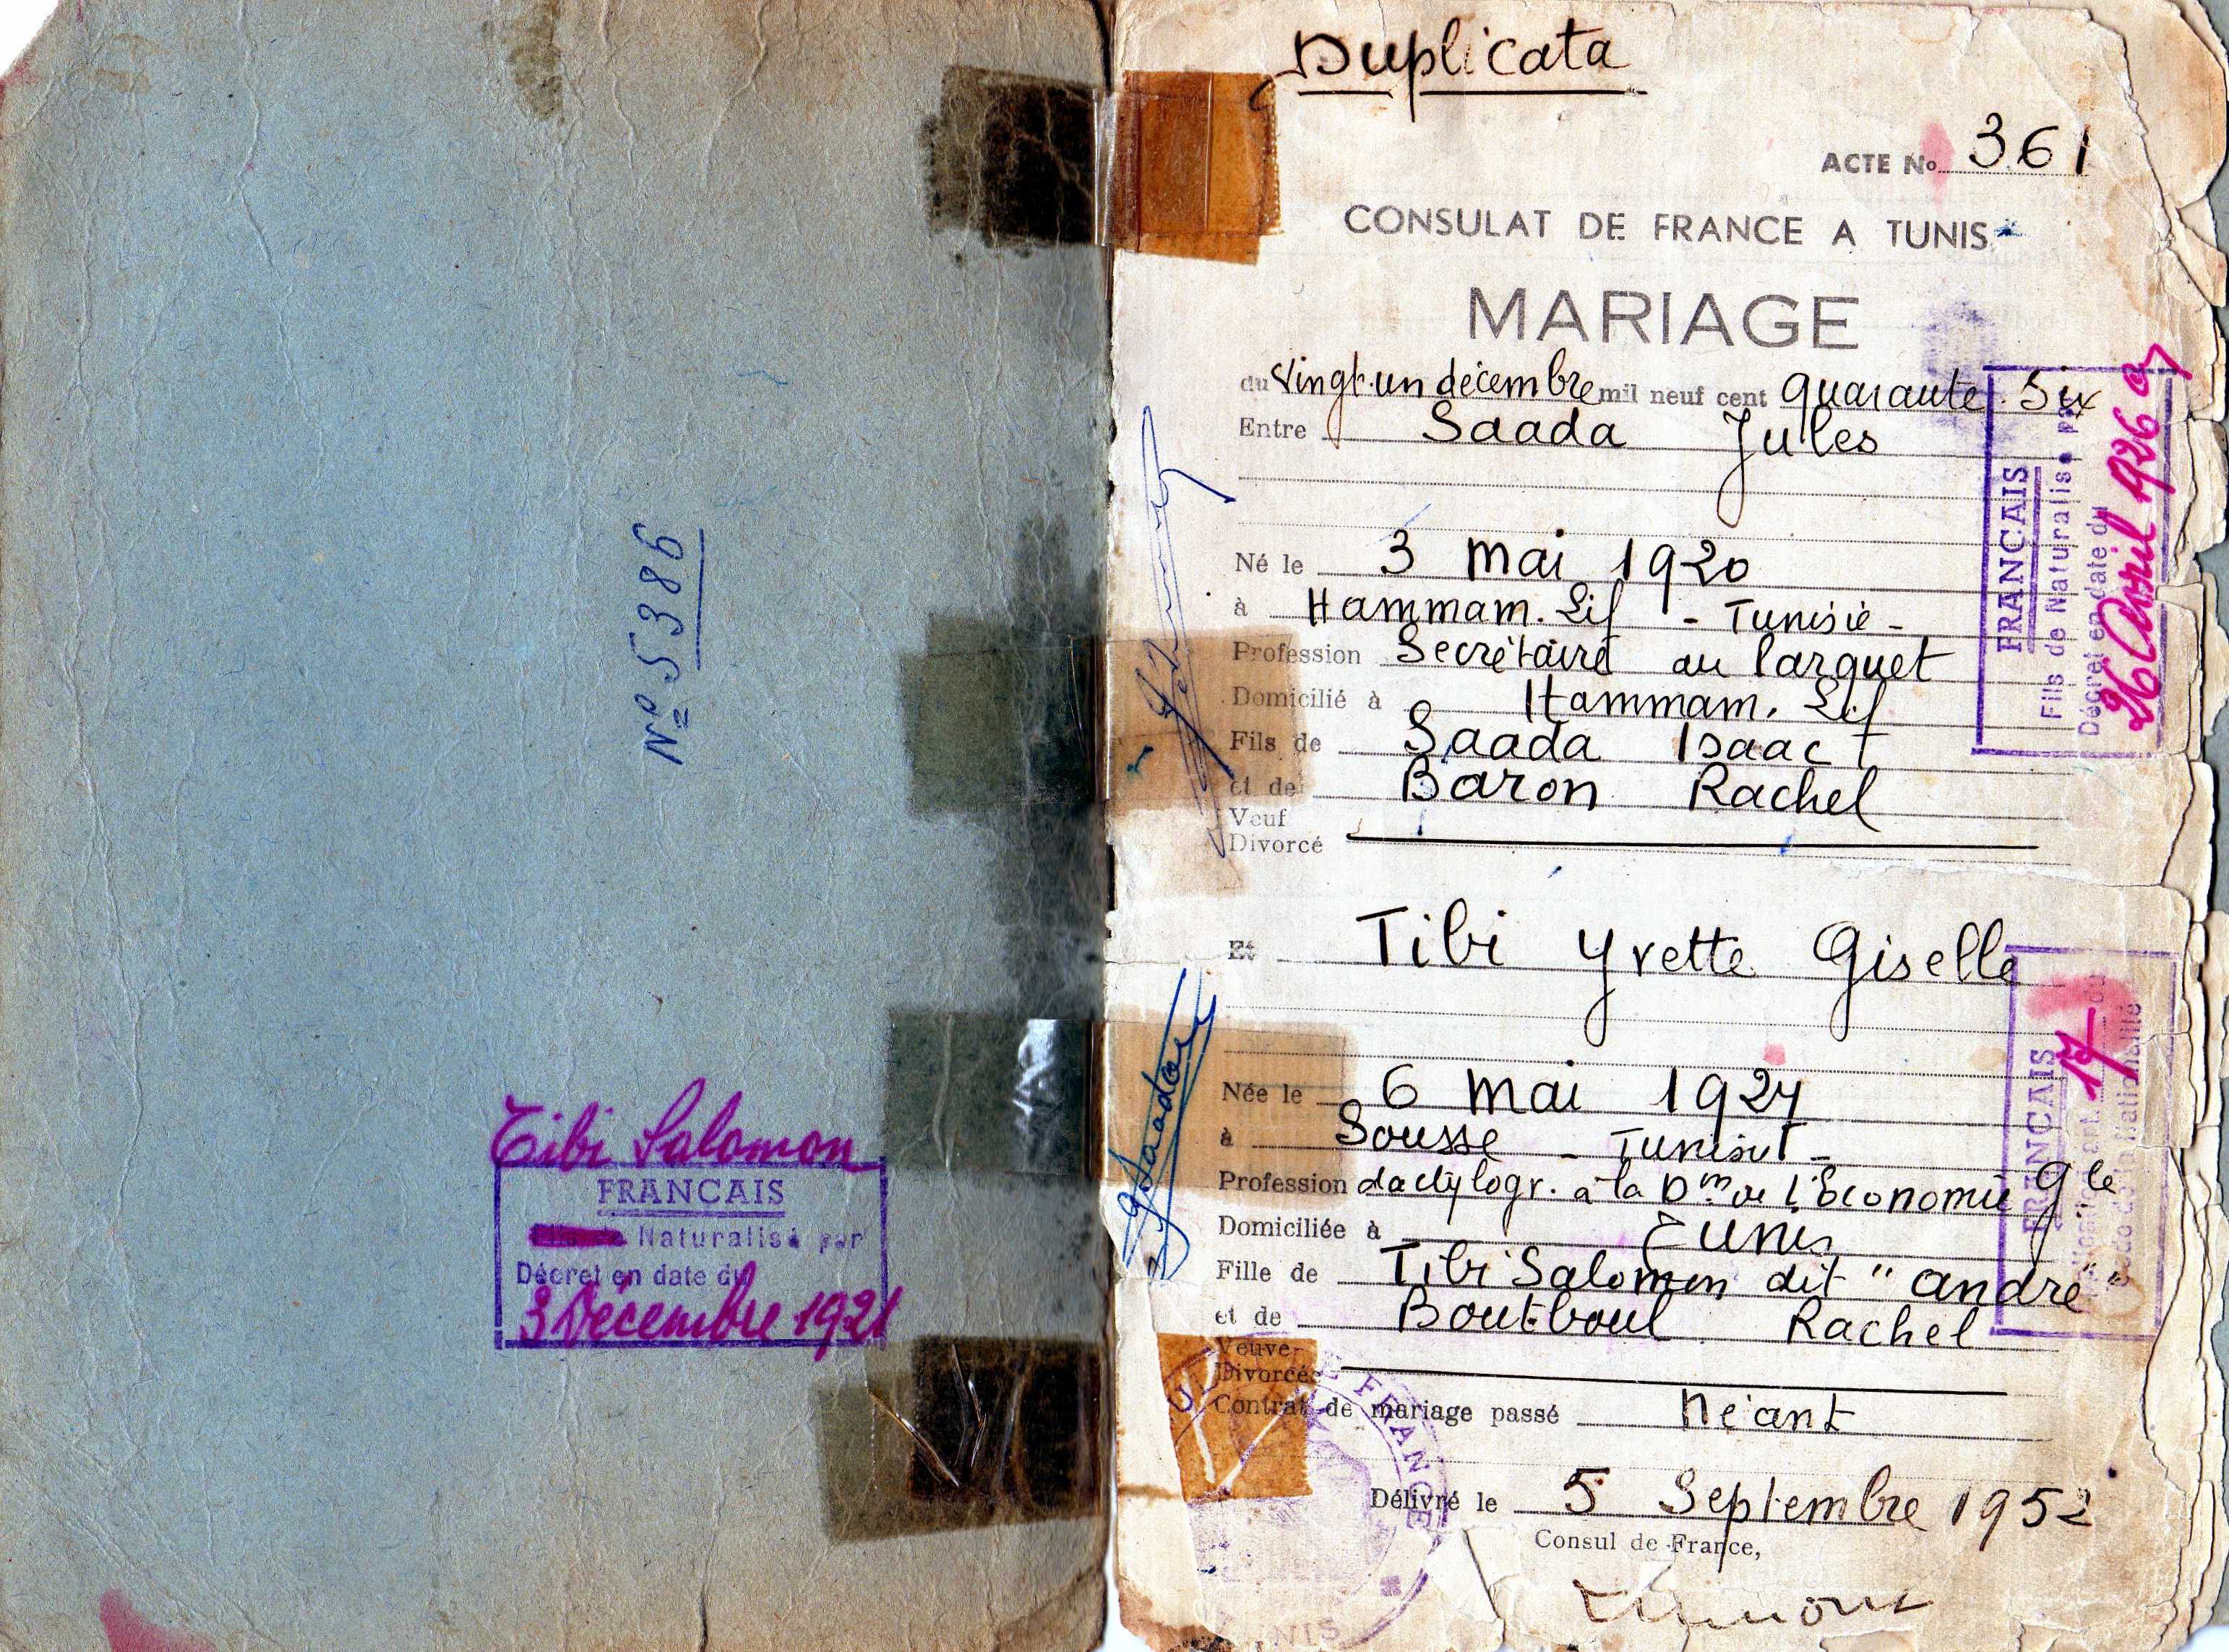 N° 5386
Tibi Salomon
FRANCAIS
Naturalisé par
Décret en date du
3 Décembre 1921
Duplicata
ACTE No 361
CONSULAT DE FRANCE A TUNIS
MARIAGE
du Vingt-un décembre mil neuf cent quarante six
Entre Saada Jules
Né le 3 mai 1920
à Hammam. Lif - Tunisie -
Profession Secrétaire au Parquet
Domicilié à Hammam. Lif
Fils de Saada Isaac
et de Baron Rachel
Veuf
Divorcé
FRANCAIS
Fils de Naturalisé par
Décret en date du
26 Avril 1926
Et Tibi Yvette Giselle
Née le 6 mai 1924
à Sousse - Tunisie -
Profession dactylogr. à la Dion de l'Economie Gle
Domiciliée à Tunis
Fille de Tibi Salomon dit "andré"
et de Boutboul Rachel
Veuve-
Divorcée
Contrat de mariage passé Néant
FRANCAIS
17
Nationalité
Délivré le 5 Septembre 1952
Consul de France,
DE FRANCE